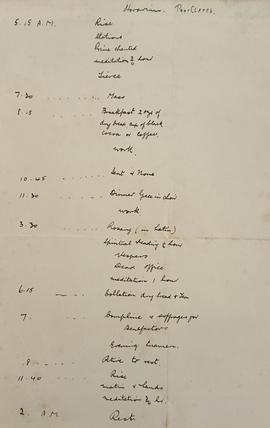 Horarium. Poor Clares.
5.15 A.M. Rise
Stations
Prime chanted
meditation ½ hour
Tierce
7.30 ...... Mass
8.15 Breakfast 2 ozs of
dry bread cup of black
cocoa or coffee.
work.
10.45 ...... Sext & None
11.30 ...... Dinner Grace in choir
work
3.30 ...... Rosary (in Latin)
Spiritual Reading ½ hour
Vespers
Dead office
meditation 1 hour
6.15 Collation dry bread & Tea
7. ...... Compline & suffrages for
Benefactors
Evening
8 ...... Retire to rest.
11.40 ...... Rise
matins & Lauds
meditation ½ hr.
2. A.M. Rest